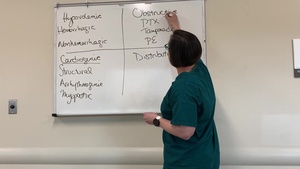 Hypovolemic
Hemorrhagic
Nonhemorrhagic
Cardiogenic
Structural
Arrhythmogenic
Myopathic
Obstructive
PTX
Tamponade
PE
Distributive